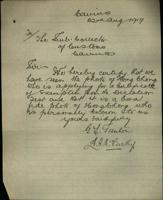 Cairns
22nd Aug 1917
The Sub Collector
of Customs
Cairns
Sir
We hereby certify that we
have seen the photo of Hong Chong
who is applying for a Certificate
of Exemption from the Dictation
Test and that it is a true
photo of Hong Chong who
is personally known to us
yours faithfully